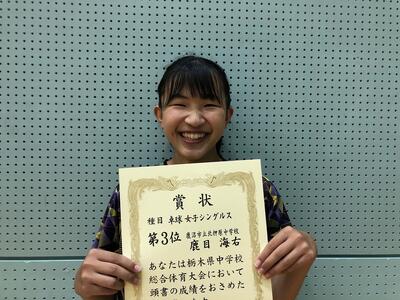 賞状
種目 卓球 女子シングルス
第3位 鹿沼市立北押原中学校
鹿目 海右
あなたは栃木県中学校
総合体育大会において
頭書の成績をおさめた